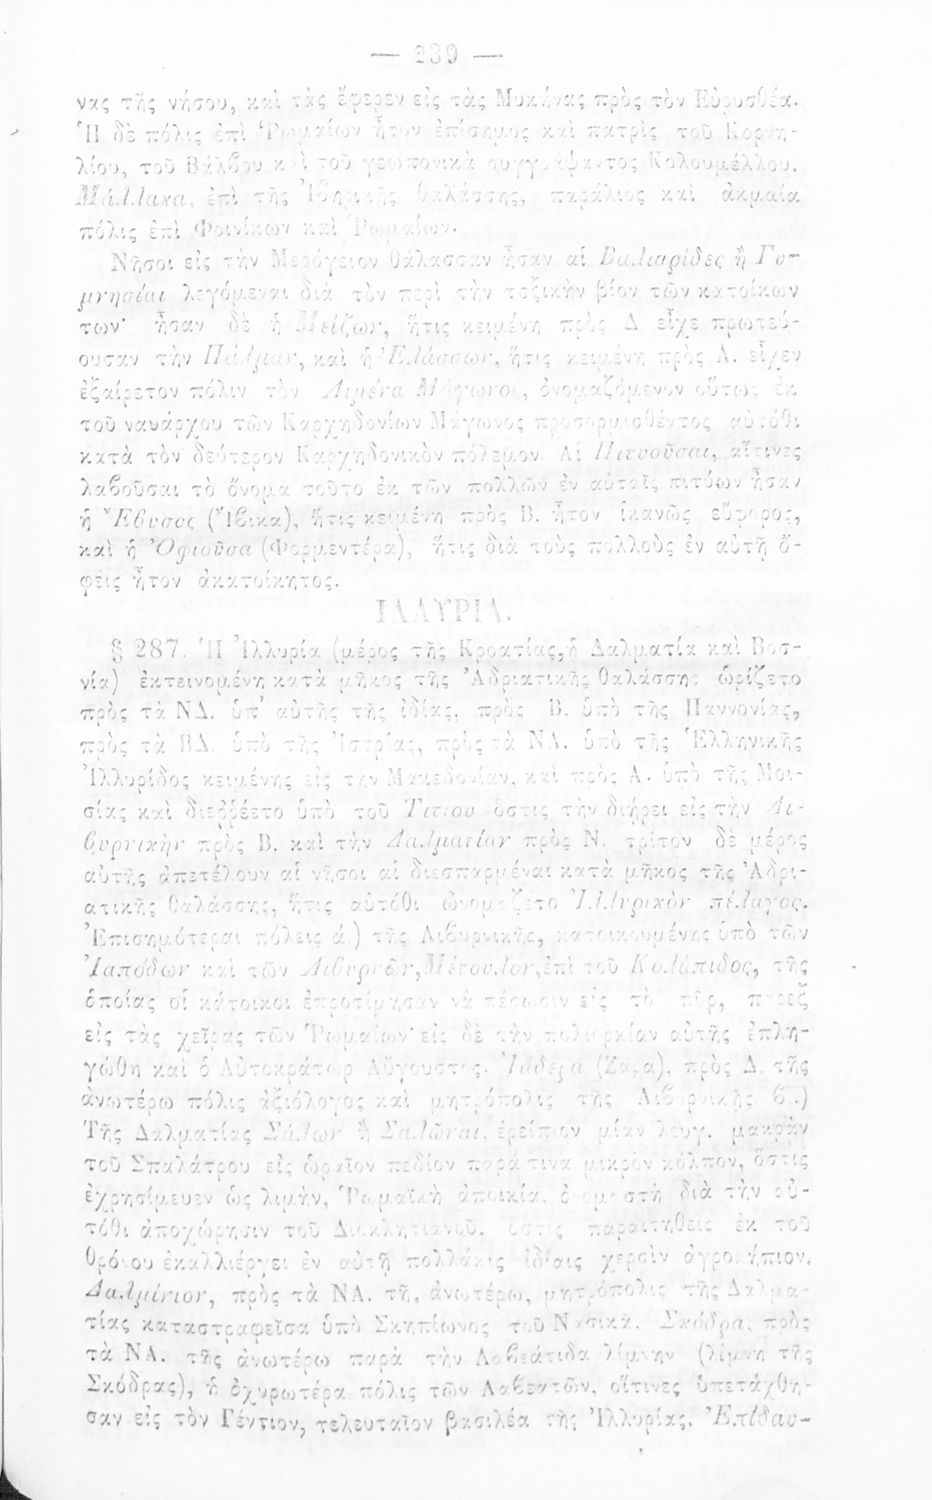 — 239 —
νας τῆς νήσου, καὶ τὰς ἔφερεν εἰς τὰς Μυκήνας πρὸς τὸν Εὐρυσθέα.
Ἡ δὲ πόλις ἐπὶ Ῥωμαίων ἦτον ἐπίσημος καὶ πατρὶς τοῦ Κορνη-
λίου, τοῦ Βάλβου καὶ τοῦ γεωπονικὰ συγγράψαντος Κολουμέλλου.
Μάλλακα, ἐπὶ τῆς Ἰβηρικῆς θαλάσσης, παράλιος καὶ ἀκμαία
πόλις ἐπὶ Φοινίκων καὶ Ῥωμαίων.
Νῆσοι εἰς τὴν Μεσόγειον θάλασσαν ἦσαν αἱ Βαλιαρίδες ἢ Γυ-
μνησίαι λεγόμεναι διὰ τὸν περὶ τὴν τοξικὴν βίον τῶν κατοίκων
των· ἦσαν δὲ ἡ Μείζων, ἥτις κειμένη πρὸς Δ εἶχε πρωτεύ-
ουσαν τὴν Πάλμαν, καὶ ἡ Ἐλάσσων, ἥτις κειμένη πρὸς Α. εἶχεν
ἐξαίρετον πόλιν τὸν Λιμένα Μάγωνος, ὀνομαζόμενον οὕτως ἐκ
τοῦ ναυάρχου τῶν Καρχηδονίων Μάγωνος προσορμισθέντος αὐτόθι
κατὰ τὸν δεύτερον Καρχηδονικὸν πόλεμον. Αἱ Πιτυοῦσαι, αἵτινες
λαβοῦσαι τὸ ὄνομα τοῦτο ἐκ τῶν πολλῶν ἐν αὐταῖς πιτύων ἦσαν
ἡ Ἔβυσος (Ἴβικα), ἥτις κειμένη πρὸς Β. ἦτον ἱκανῶς εὔφορος,
καὶ ἡ Ὀφιοῦσα (Φορμεντέρα), ἥτις διὰ τοὺς πολλοὺς ἐν αὐτῇ ὄ-
φεις ἦτον ἀκατοίκητος.
ΙΛΛΥΡΙΑ.
§ 287. Ἡ Ἰλλυρία (μέρος τῆς Κροατίας, ἡ Δαλματία καὶ Βοσ-
νία) ἐκτεινομένη κατὰ μῆκος τῆς Ἀδριατικῆς θαλάσσης ὡρίζετο
πρὸς τὰ ΝΔ. ὑπ' αὐτῆς τῆς ἰδίας, πρὸς Β. ὑπὸ τῆς Παννονίας,
πρὸς τὰ ΒΔ. ὑπὸ τῆς Ἰστρίας, πρὸς τὰ ΝΑ. ὑπὸ τῆς Ἑλληνικῆς
Ἰλλυρίδος κειμένης εἰς τὴν Μακεδονίαν, καὶ πρὸς Α. ὑπὸ τῆς Μοι-
σίας καὶ διεῤῥέετο ὑπὸ τοῦ Τιτίου ὅστις τὴν διῄρει εἰς τὴν Λι-
βυρνικὴν πρὸς Β. καὶ τὴν Δαλματίαν πρὸς Ν. τρίτον δὲ μέρος
αὐτῆς ἀπετέλουν αἱ νῆσοι αἱ διεσπαρμέναι κατὰ μῆκος τῆς Ἀδρι-
ατικῆς θαλάσσης, ἥτις αὐτόθι ὠνομάζετο Ἰλλυρικὸν πέλαγος.
Ἐπισημότεραι πόλεις ά.) τῆς Λιβυρνικῆς, κατοικουμένης ὑπὸ τῶν
Ἰαπόδων καὶ τῶν Λιβυρνῶν, Μέτουλον, ἐπὶ τοῦ Κολάπιδος, τῆς
ὁποίας οἱ κάτοικοι ἐπροτίμησαν νὰ πέσωσιν εἰς τὸ πῦρ, παρὰ
εἰς τὰς χεῖρας τῶν Ῥωμαίων· εἰς δὲ τὴν πολιορκίαν αὐτῆς ἐπλη-
γώθη καὶ ὁ Αὐτοκράτωρ Αὔγουστος. Ἰάδερα (Ζάρα), πρὸς Δ. τῆς
ἀνωτέρω πόλις ἀξιόλογος καὶ μητρόπολις τῆς Λιβυρνικῆς. β.)
Τῆς Δαλματίας Σάλων ἢ Σαλῶναι, ἐρείπιον μίαν λευγ. μακρὰν
τοῦ Σπαλάτρου εἰς ὡραῖον πεδίον παρά τινα μικρὸν κόλπον, ὅστις
ἐχρησίμευεν ὡς λιμὴν, Ῥωμαϊκὴ ἀποικία, ὀνομαστὴ διὰ τὴν αὐ-
τόθι ἀποχώρησιν τοῦ Διοκλητιανοῦ, ὅστις παραιτηθεὶς ἐκ τοῦ
θρόνου ἐκαλλιέργει ἐν αὐτῇ πολλάκις ἰδίαις χερσὶν ἀγροκήπιον.
Δαλμίνιον, πρὸς τὰ ΝΑ. τῆς ἀνωτέρω, μητρόπολις τῆς Δαλμα-
τίας καταστραφεῖσα ὑπὸ Σκηπίωνος τοῦ Νασικᾶ. Σκόδρα, πρὸς
τὰ ΝΑ. τῆς ἀνωτέρω παρὰ τὴν Λαβεάτιδα λίμνην (λίμνη τῆς
Σκόδρας), ἡ ὀχυρωτέρα πόλις τῶν Λαβεατῶν, οἵτινες ὑπετάχθη-
σαν εἰς τὸν Γέντιον, τελευταῖον βασιλέα τῆς Ἰλλυρίας. Ἐπίδαυ-